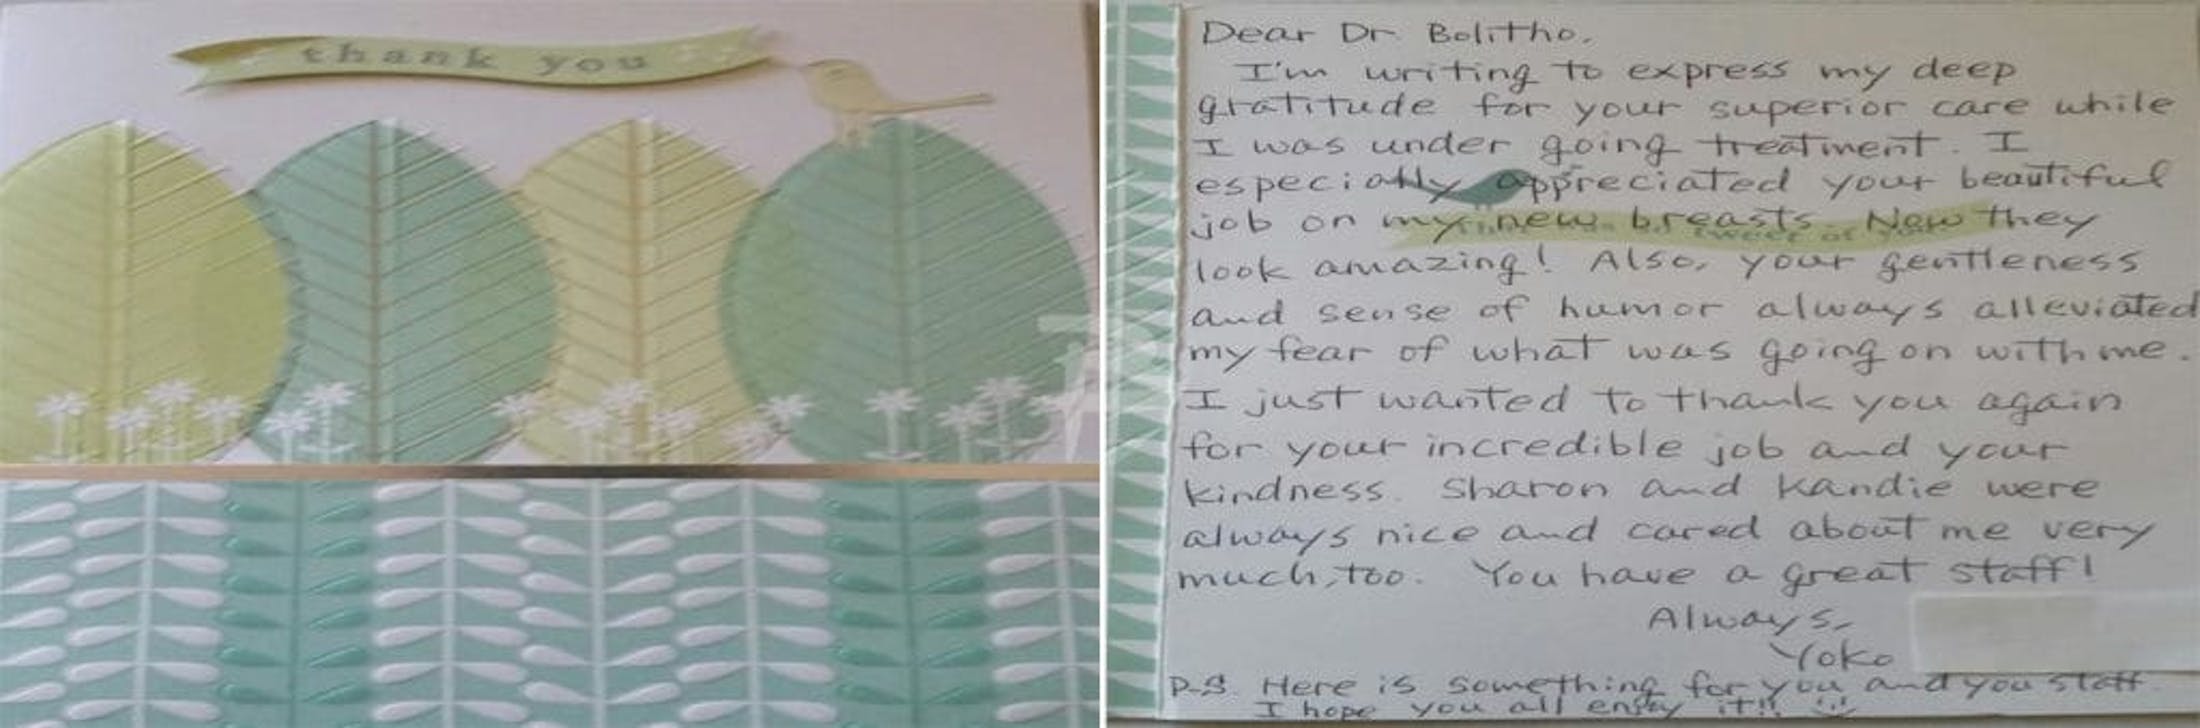 thank you
Dear Dr Bolitho,
I'm writing to express my deep
gratitude for your superior care while
I was under going treatment. I
especially appreciated your beautiful
job on my new breasts. Now they
look amazing! Also, your gentleness
and sense of humor always alleviated
my fear of what was going on with me.
I just wanted to thank you again
for your incredible job and your
kindness. Sharon and Kandie were
always nice and cared about me very
much, too. You have a great staff!
Always,
Yoko
P.S. Here is something for you and you staff.
I hope you all enjoy it!!